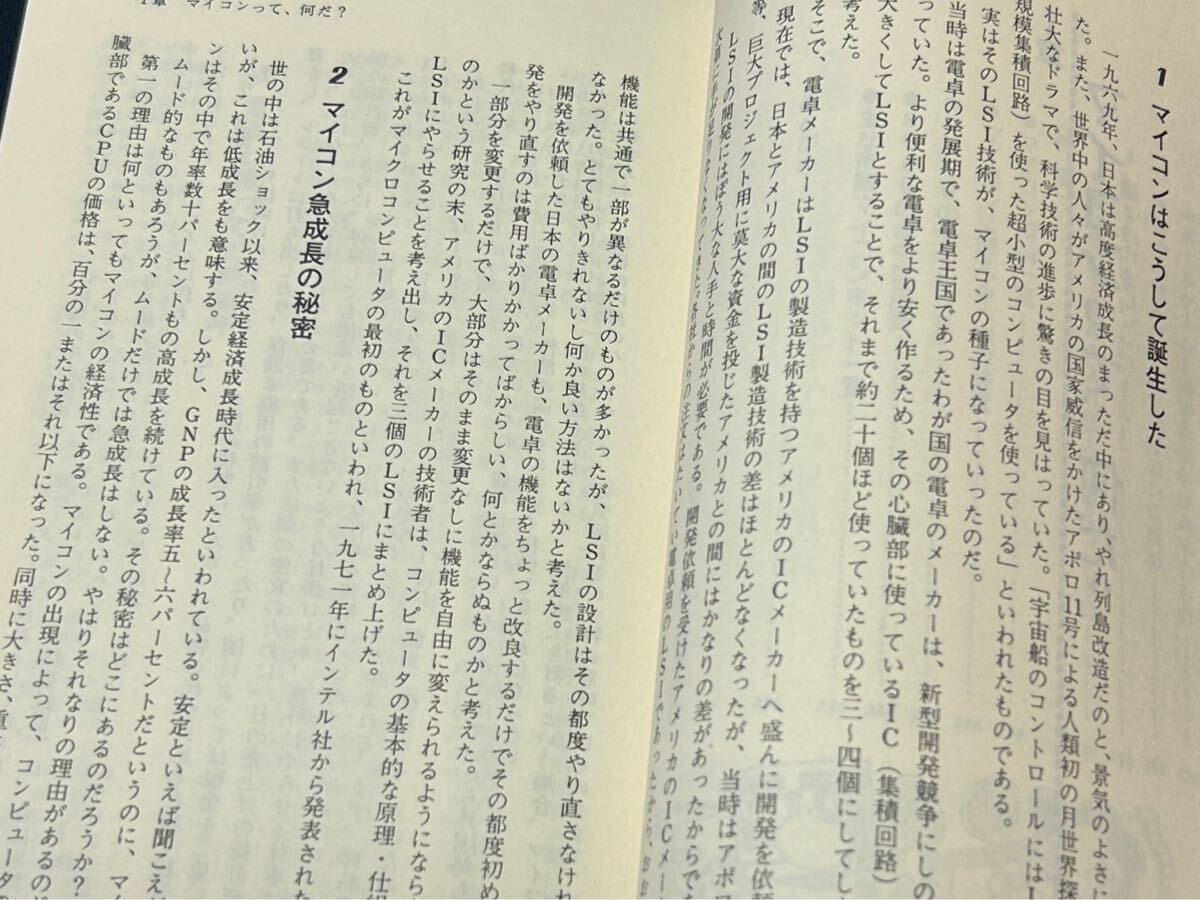 1 マイコンはこうして誕生した
一九六九年、日本は高度経済成長のまっただ中にあり、やれ列島改造だのと、景気のよさに
た。また、世界中の人々がアメリカの国家威信をかけたアポロ11号による人類初の月世界探
壮大なドラマで、科学技術の進歩に驚きの目を見はっていた。「宇宙船のコントロールにはL
規模集積回路）を使った超小型のコンピュータを使っている」といわれたものである。
実はそのLSI技術が、マイコンの種子になっていったのだ。
当時は電卓の発展期で、電卓王国であったわが国の電卓のメーカーは、新型開発競争にしの
っていた。より便利な電卓をより安く作るため、その心臓部に使っているIC（集積回路）
大きくしてLSIとすることで、それまで約二十個ほど使っていたものを三〜四個にしてし
考えた。
そこで、電卓メーカーはLSIの製造技術を持つアメリカのICメーカーへ盛んに開発を依頼
現在では、日本とアメリカの間のLSI製造技術の差はほとんどなくなったが、当時はアポロ
等、巨大プロジェクト用に莫大な資金を投じたアメリカとの間にはかなりの差があったからで
LSIの開発にはぼう大な人手と時間が必要である。開発依頼を受けたアメリカのICメー
1章 マイコンって、何だ？
機能は共通で一部が異なるだけのものが多かったが、LSIの設計はその都度やり直さなけれ
なかった。とてもやりきれないし何か良い方法はないかと考えた。
開発を依頼した日本の電卓メーカーも、電卓の機能をちょっと改良するだけでその都度初め
発をやり直すのは費用ばかりかかってばからしい、何とかならぬものかと考えた。
一部分を変更するだけで、大部分はそのまま変更なしに機能を自由に変えられるようになら
のかという研究の末、アメリカのICメーカーの技術者は、コンピュータの基本的な原理・仕組
LSIにやらせることを考え出し、それを三個のLSIにまとめ上げた。
これがマイクロコンピュータの最初のものといわれ、一九七一年にインテル社から発表された
2 マイコン急成長の秘密
世の中は石油ショック以来、安定経済成長時代に入ったといわれている。安定といえば聞こえ
いが、これは低成長をも意味する。しかし、GNPの成長率五〜六パーセントだというのに、マ
ンはその中で年率数十パーセントもの高成長を続けている。その秘密はどこにあるのだろうか？
ムード的なものもあろうが、ムードだけでは急成長はしない。やはりそれなりの理由があるの
第一の理由は何といってもマイコンの経済性である。マイコンの出現によって、コンピュータの
臓部であるCPUの価格は、百分の一またはそれ以下になった。同時に大きさ、重